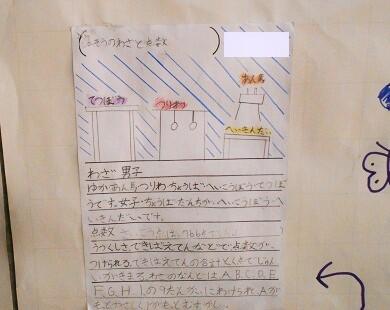 たいそうのわざと点数
あん馬
てつぼう
つりわ
へいきんだい
わざ 男子
ゆかあん馬つりわちょうばへいこうぼうてつぼ
うです。女子ちょうばだんちがいへいこうぼうへ
いきんだいです。
点数
うつくしさ、できばえてんなどで点数が
つけられる。できばえてんの合計とくさでじゅん
いがきまる。わざのなんどはA、B、C、D、E
F、G、H、Iの9だんかいにわけられ、Aが
もっともやさしく、Iがもっともむずかしい。